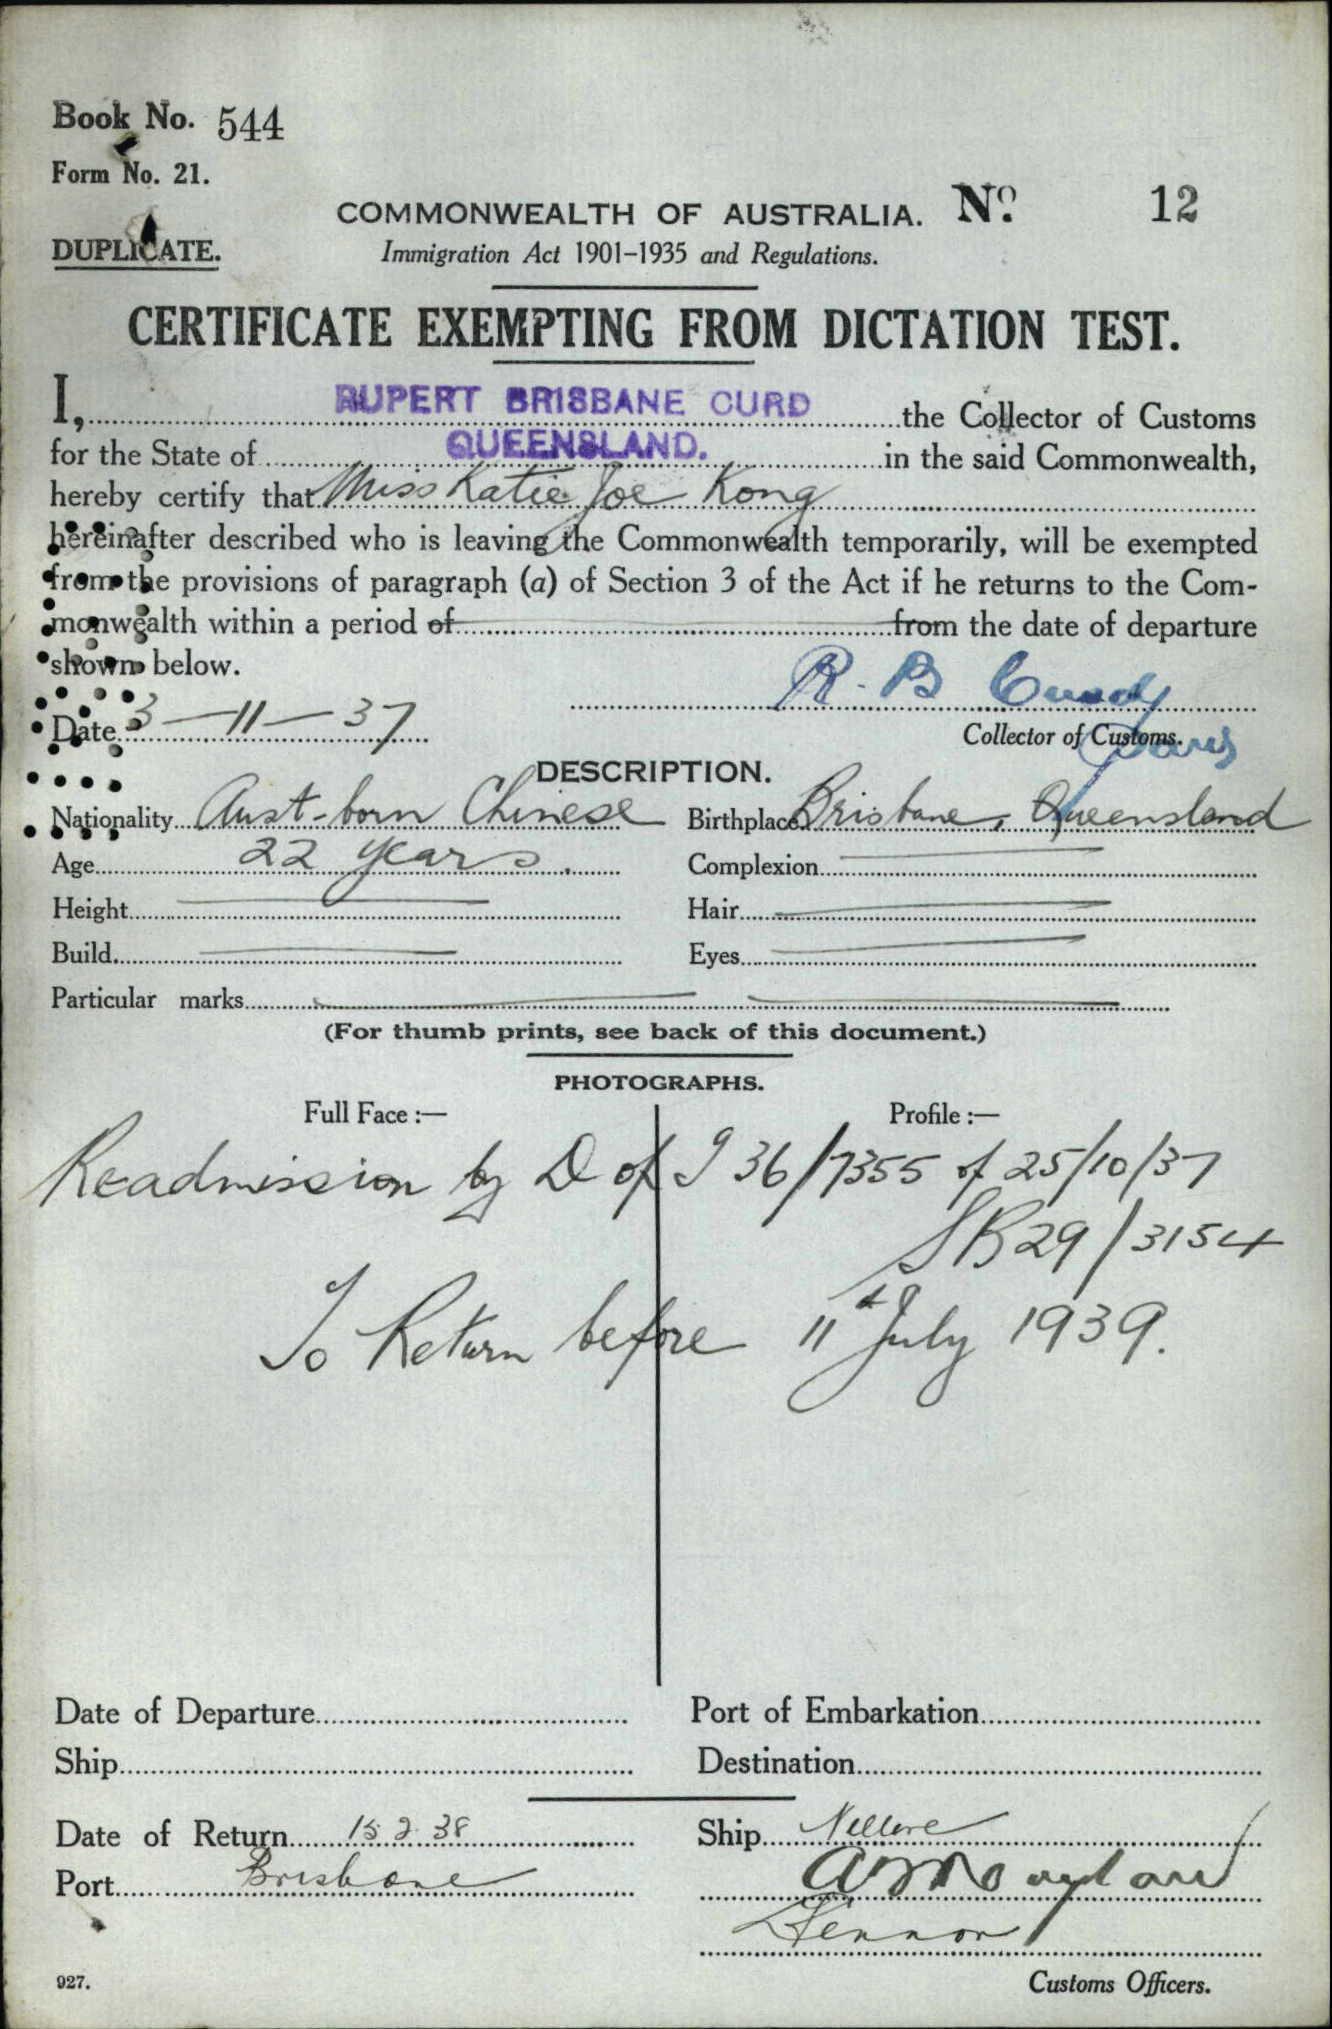 Book No. 544
Form No. 21.
COMMONWEALTH OF AUSTRALIA. No. 12
DUPLICATE.
Immigration Act 1901-1935 and Regulations.
CERTIFICATE EXEMPTING FROM DICTATION TEST.
I, RUPERT BRISBANE CURD the Collector of Customs
for the State of QUEENSLAND. in the said Commonwealth,
hereby certify that Miss Katie Joe Kong
hereinafter described who is leaving the Commonwealth temporarily, will be exempted
from the provisions of paragraph (a) of Section 3 of the Act if he returns to the Com-
monwealth within a period of from the date of departure
shown below.
R. B Curd
Date 3-11-37
Collector of Customs.
DESCRIPTION.
Nationality Aust-born Chinese Birthplace Brisbane, Queensland
Age 22 years. Complexion
Height Hair
Build Eyes
Particular marks
(For thumb prints, see back of this document.)
PHOTOGRAPHS.
Full Face :— Profile :—
Readmission by D of I 36/7355 of 25/10/37
SB29/3154
To Return before 11th July 1939.
Date of Departure Port of Embarkation
Ship Destination
Date of Return 15.2.38 Ship Nellore
Port Brisbane
Customs Officers.
927.